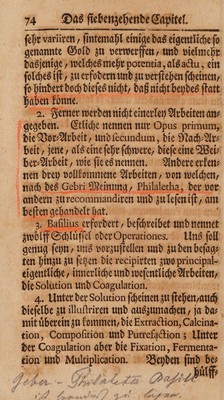 74 Das siebenzehende Capitel.
sehr variiren, sintemahl einige das eigentliche so
genannte Gold zu verwerffen, und vielmehr
dasjenige, welches mehr potentia, als actu, ein
solches ist, zu erfodern und zu verstehen scheinen,
so hindert doch dieses nicht, daß nicht beydes statt
haben könne.
2. Ferner werden nicht einerley Arbeiten an-
gegeben. Etliche nennen nur Opus primum,
die Vor-Arbeit und secundum, die Nach-Ar-
beit, jene, als eine sehr schwere, diese eine Wei-
ber-Arbeit, wie sie es nennen. Andere erken-
nen drey vollkommene Arbeiten, von welchen,
nach des Gebri Meinung, Philaletha, der vor
andern zu recommandiren und zu lesen ist, am
besten gehandelt hat.
3. Basilius erfordert, beschreibet und nennet
zwölff Schlüssel oder Operationes. Uns soll
genug seyn, uns vorzustellen und zu den besag-
ten hinzu zu setzen die recipirten zwo principal-
eigentliche, innerliche und wesentliche Arbeiten,
die Solution und Coagulation.
4. Unter der Solution scheinen zu stehen, auch
dieselbe zu illustriren und auszumachen, ja da-
mit überein zu kommen, die Extraction, Calcina-
tion, Composition und Putrefaction; Unter
der Coagulation aber die Fixation, Fermenta-
tion und Multiplication. Beyden sind be-
hülff-
Geber - Philaleta Basili
ist besonders zu